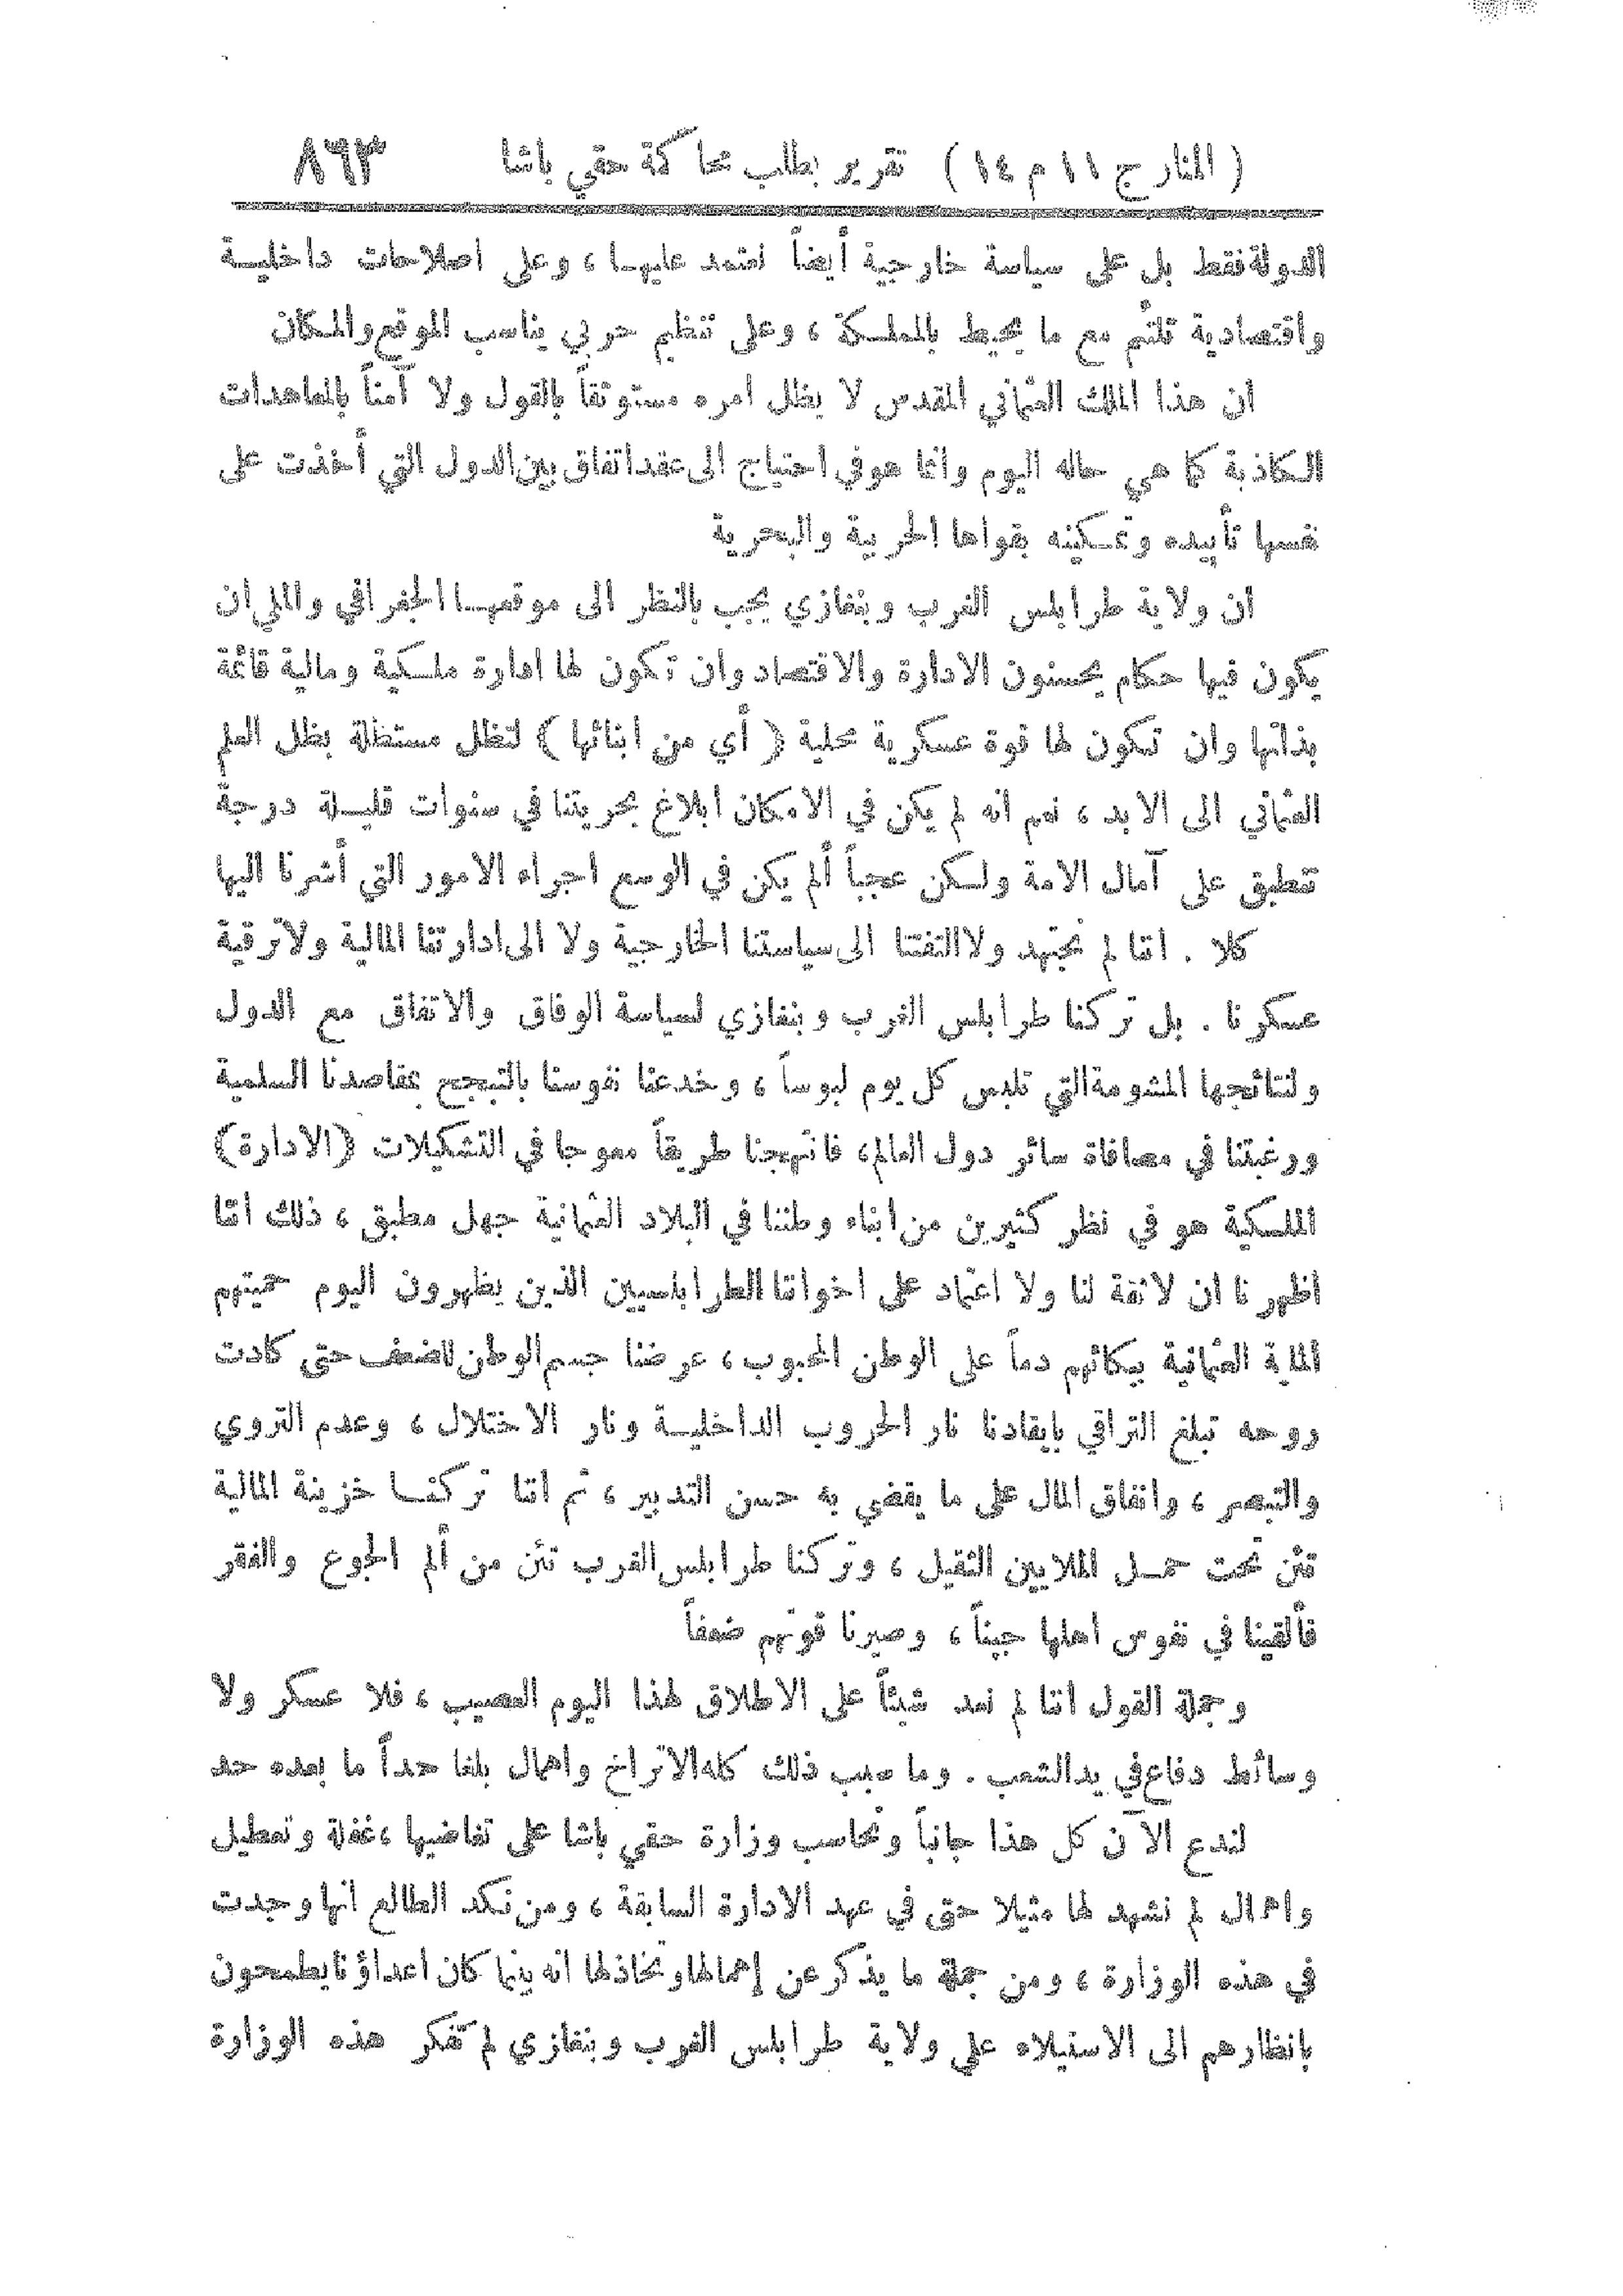 ( المنار ج ١١ م ١٤ ) تقرير بطلب محاكمة حقي باشا ٨٦٣
الدولة فقط بل على سياسة خارجية أيضاً نعتمد عليهـا ، وعلى اصلاحات داخليـة
واقتصادية تلتئم مع ما يحيط بالمملـكة ، وعلى تنظيم حربي يناسب الموقع والمـكان
ان هذا الملك العثماني المقدس لا يظل امره مستوثقاً بالقول ولا آمناً بالمعاهدات
الـكاذبة كما هي حاله اليوم وانما هو في احتياج الى عقد اتفاق بين الدول التي أخذت على
نفسها تأييده وتمـكينه بقواها الحربية والبحرية
ان ولاية طرابلس الغرب وبنغازي يجب بالنظر الى موقعهـا الجغرافي والملي ان
يكون فيها حكام يحسنون الادارة والاقتصاد وان تكون لها ادارة ملـكية ومالية قائمة
بذاتها وان تـكون لها قوة عسكرية محلية ( أي من ابنائها ) لتظل مستظلة بظل العلم
العثماني الى الابد ، نعم انه لم يكن في الامكان ابلاغ بحريتنا في سنوات قليـلة درجة
تنطبق على آمال الامة ولـكن عجباً ألم يكن في الوسع اجراء الامور التي أشرنا اليها
كلا . اننا لم نجتهد ولا التفتنا الى سياستنا الخارجية ولا الى ادارتنا المالية ولا ترقية
عسكرنا . بل تركنا طرابلس الغرب وبنغازي لسياسة الوفاق والاتفاق مع الدول
ولنتائجها المشومة التي تلبس كل يوم لبوساً ، وخدعنا نفوسنا بالتبجح بمقاصدنا السلمية
ورغبتنا في مصافاة سائر دول العالم، فانتهجنا طريقاً معوجا في التشكيلات (الادارة)
الملـكية هو في نظر كثيرين من ابناء وطننا في البلاد العثمانية جهل مطبق ، ذلك اننا
اظهرنا ان لا ثقة لنا ولا اعتماد على اخواننا الطرابلسيين الذين يظهرون اليوم حميتهم
الملية العثمانية ببكائهم دماً على الوطن المحبوب ، عرضنا جسم الوطن للضعف حتى كادت
روحه تبلغ التراقي بايقادنا نار الحروب الداخليـة ونار الاختلال ، وعدم التروي
والتبصر ، وانفاق المال على ما يقضي به حسن التدبير ، ثم اننا تركنـا خزينة المالية
تئن تحت حمـل الملايين الثقيل ، وتركنا طرابلس الغرب تئن من ألم الجوع والفقر
فألقينا في نفوس اهلها جبناً ، وصيرنا قوتهم ضعفاً
وجملة القول اننا لم نعد شيئاً على الاطلاق لهذا اليوم العصيب ، فلا عسكر ولا
وسائط دفاع في يد الشعب . وما سبب ذلك كله الا تراخ واهمال بلغا حداً ما بعده حد
لندع الآن كل هذا جانباً ونحاسب وزارة حقي باشا على تغاضيها ، غفلة وتعطيل
واهمال لم نشهد لها مثيلا حتى في عهد الادارة السابقة ، ومن نكد الطالع انها وجدت
في هذه الوزارة ، ومن جملة ما يذكر عن إهمالها وتخاذلها انه بينما كان اعداؤنا يطمحون
بانظارهم الى الاستيلاء على ولاية طرابلس الغرب وبنغازي لم تفكر هذه الوزارة